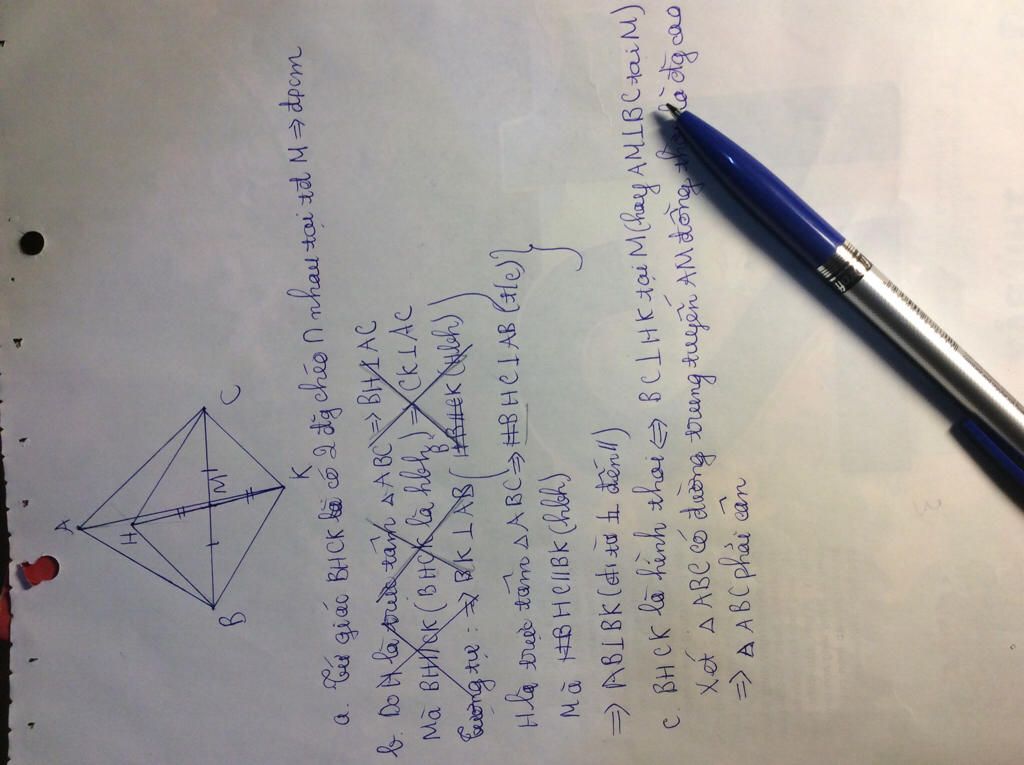 A
H
B
C
M
K
a. Tứ giác BHCK có 2 đg chéo ∩ nhau tại tđ M => đpcm
b. Do H là trực tâm △ABC => BH⊥AC
Mà BH//CK (BHCK là hbh) => CK⊥AC
Tương tự: => BK⊥AB (HC//BK (hbh)
H là trực tâm △ABC => HC⊥AB (t/c)
Mà HC//BK (hbh)
=> AB⊥BK (đl từ ⊥ đến //)
c. BHCK là hình thoi <=> BC⊥HK tại M (hay AM⊥BC tại M)
Xét △ABC có đường trung tuyến AM đồng là đg cao
=> △ABC phải cân